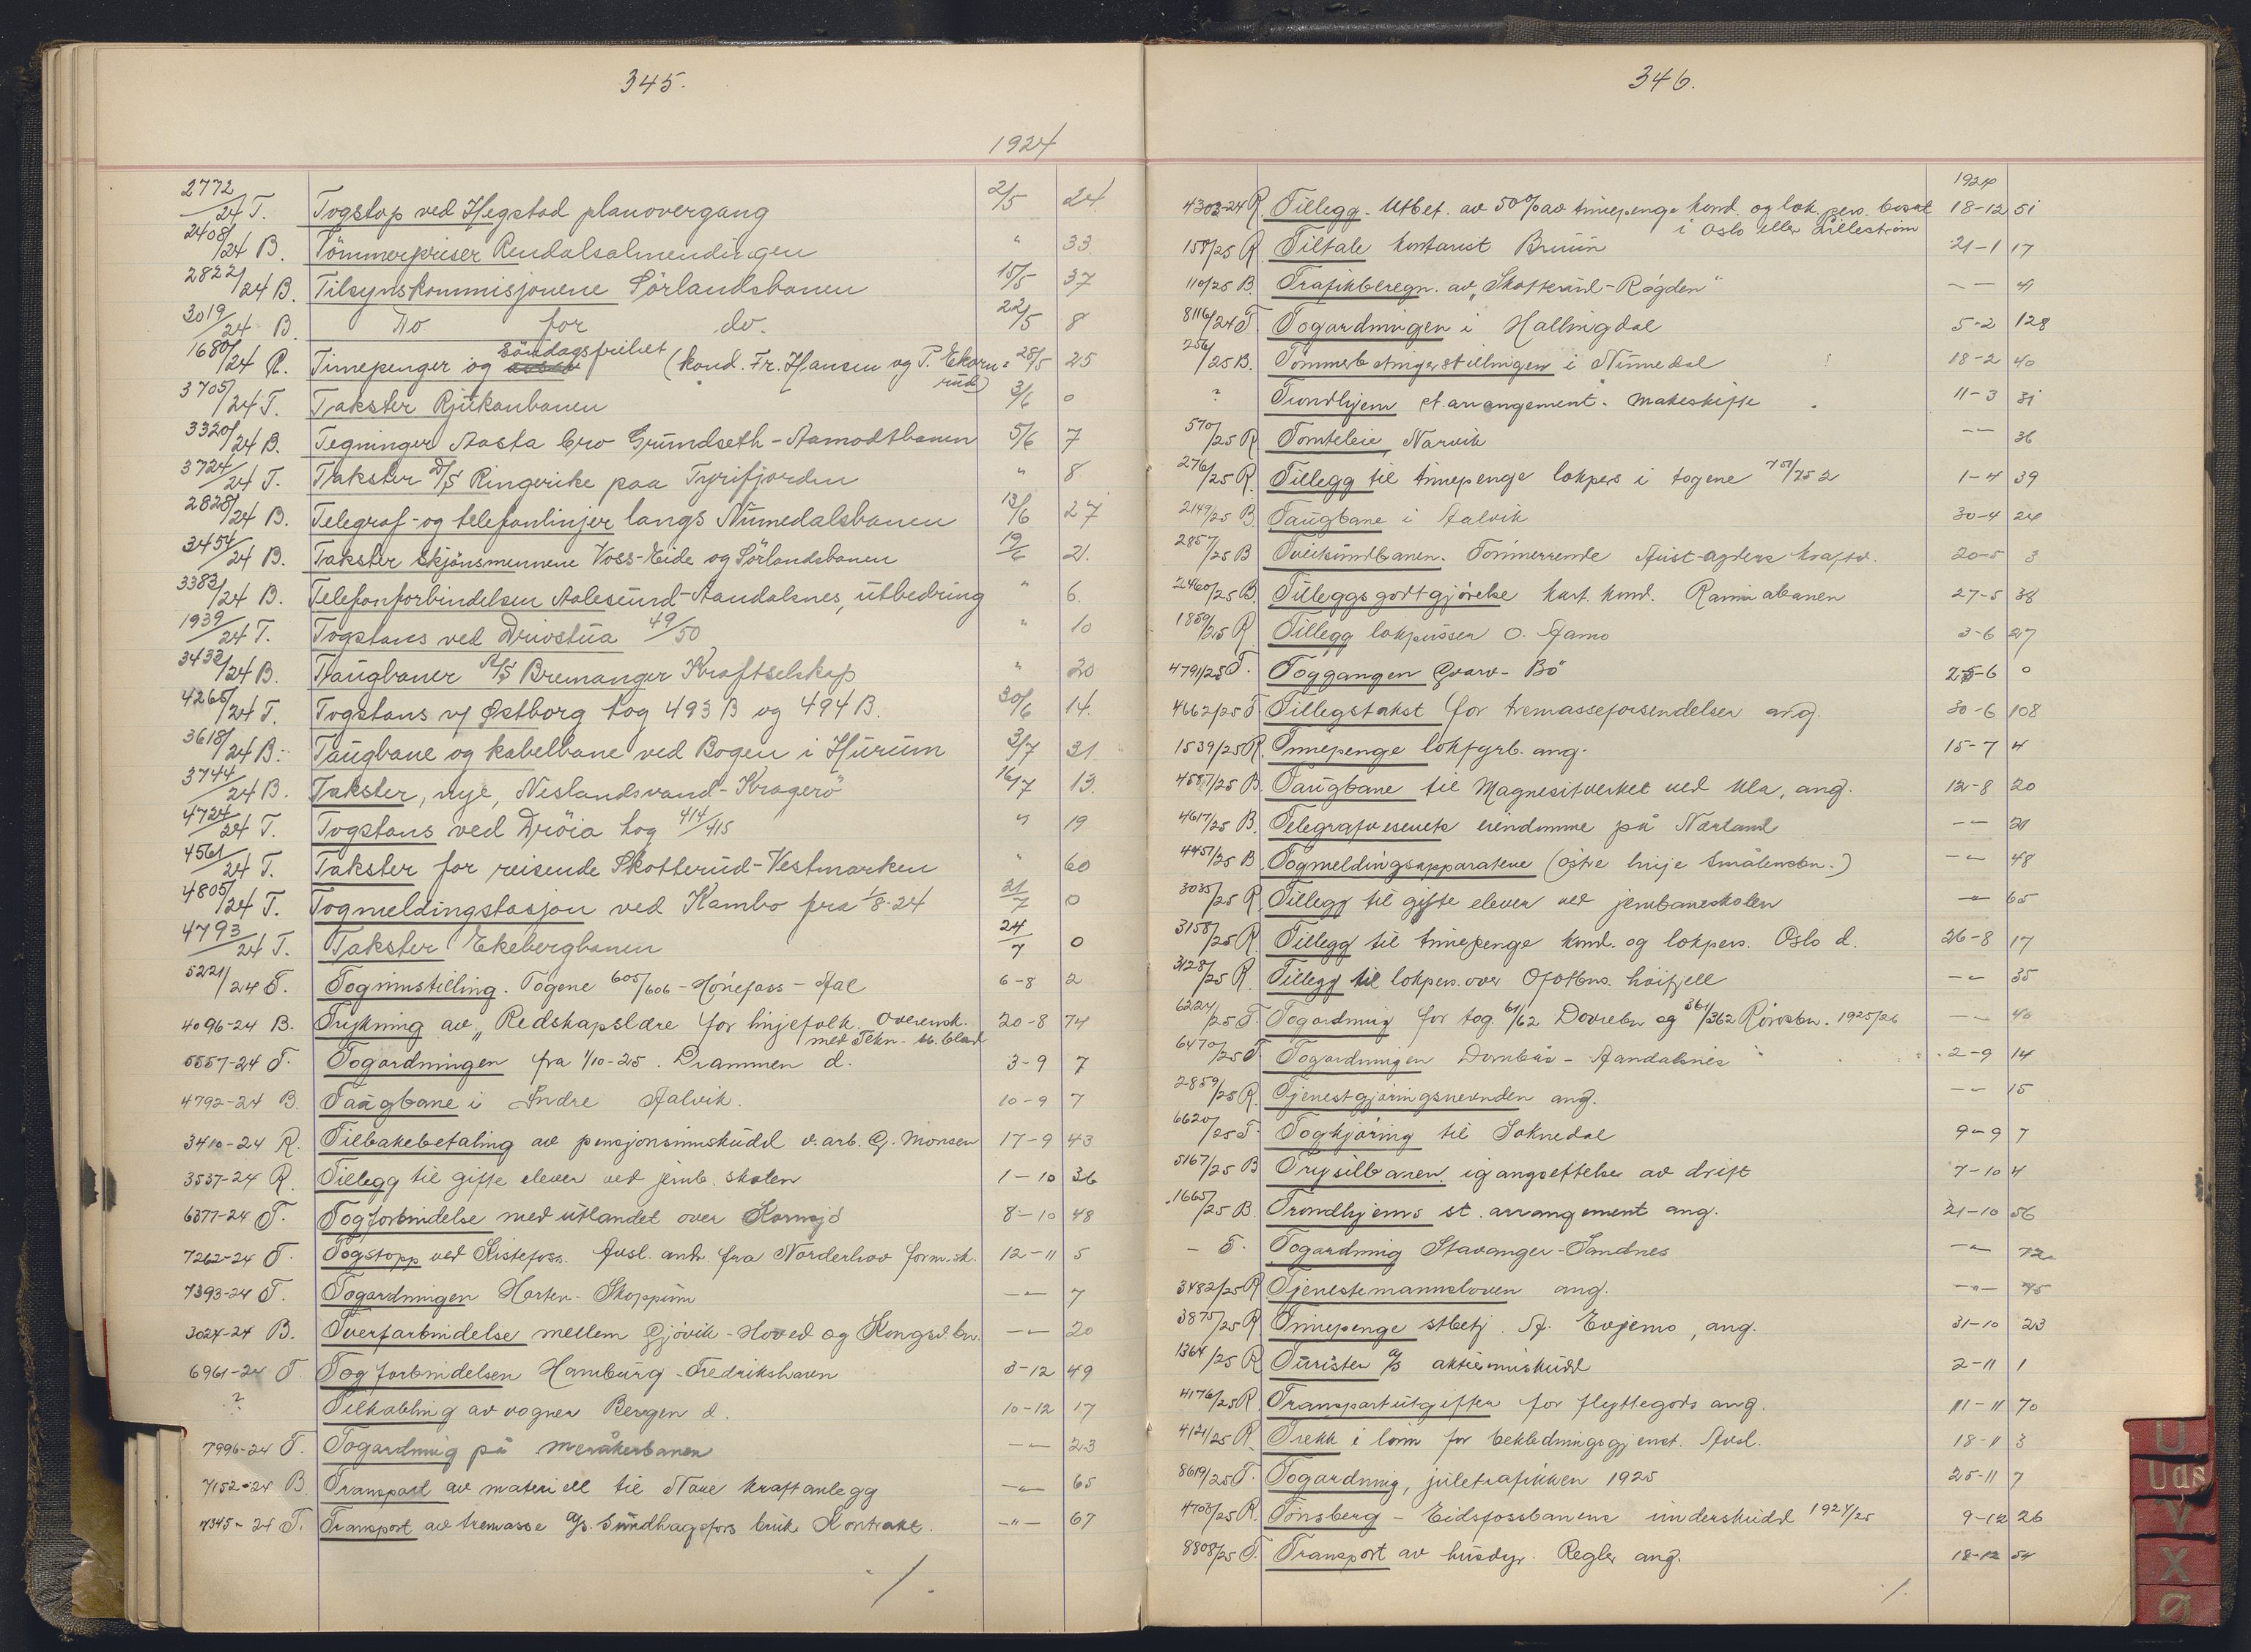 345.
1924
2772/24 T. Togstop ved Hegstad planovergang 2/5 24
2408/24 B. Tömmerpriser Rendalsalmendingen " 33
2822/24 B. Tilsynskommisjonene Sörlandsbanen 15/5 37
3019/24 B. Do for do. 22/5 8
1680/24 R. Timepenger og Söndagsfrihet (kond. Fr. Hansen og P. Ekorn- 28/5 25
rud)
3705/24 T. Takster Rjukanbanen 3/6 0
3320/24 B. Tegninger Aasta bro Grundseth-Aamodtbanen 5/6 7
3724/24 T. Takster D/S Ringerike paa Tyrifjorden " 8
2828/24 B. Telegraf- og telefonlinjer langs Numedalsbanen 13/6 27
3454/24 B. Takster skjönsmennene Voss-Eide og Sörlandsbanen 19/6 21.
3383/24 B. Telefonforbindelsen Aalesund-Aandalsnes, utbedring " 6.
1939/24 T. Togstans ved Drivstua 49/50 " 10
3432/24 B. Taugbaner A/S Bremanger Kraftselskap " 20
4265/24 T. Togstans v/ Østborg tog 493 B og 494 B. 30/6 14.
3618/24 B. Taugbane og kabelbane ved Bogen i Hurum 3/7 31
3744/24 B. Takster, nye, Neslandsvand-Kragerö 16/7 13.
4724/24 T. Togstans ved Dröia tog 414/415 " 19
4561/24 T. Takster for reisende Skotterud-Vestmarken " 60
4805/24 T. Togmeldingstasjon ved Kambo fra 1/8-24 21/7 0
4793/24 T. Takster Ekebergbanen 24/7 0
5221/24 T. Toginnstilling. Togene 605/606 - Hönefoss - Aal 6-8 2
4096-24 B. Trykning av "Redskapslære for linjefolk. Overensk. 20-8 74
med Tekn. uk. blad
5557-24 T. Togordningen fra 1/10-25. Drammen d. 3-9 7
4792-24 B. Taugbane i Indre Aalvik. 10-9 7
3410-24 R. Tilbakebetaling av pensjonsinnskudd v. arb. G. Monsen 17-9 43
3537-24 R. Tillegg til gifte elever ved jernb. skolen 1-10 36
6377-24 T. Togforbindelse med utlandet over Kornsjö 8-10 48
7262-24 T. Togstopp ved Kistefoss. Avsl. andr. fra Norderhov form.sk. 12-11 5
7393-24 T. Togordningen Horten-Skoppum -"- 7
3024-24 B. Tverforbindelse mellem Gjövik-Hoved og Kongsv.bn. -"- 20
6961-24 T. Togforbindelsen Hamburg-Fredrikshavn 3-12 49
? Tilkobling av vogner Bergen d. 10-12 17
7996-24 T. Togordning på Meråkerbanen -"- 23
7152-24 B. Transport av materiell til Nore kraftanlegg -"- 65
7345-24 T. Transport av tremasse A/S. Sundhagsfors bruk. Kontrakt. -"- 67
./.
346.
1924
4303-24 R. Tillegg. Utbet. av 50% av timepenge kond. og lok. pers. bosat 18-12 51
i Oslo eller Lilleström
158/25 R. Tiltale kontorist Bruun 21-1 17
110/25 B. Trafikberegn. av "Skotterud-Rögden" -"- 4
8116/24 T. Togordningen i Hallingdal 5-2 128
256/25 B. i Numedal 18-2 40
? Trondhjem st. arrangement. Makeskifte 11-3 31
570/25 R. Tomteleie, Narvik -"- 36
276/25 R. Tillegg til timepenge lokpers i togene 751/752 1-4 39
2149/25 B. Taugbane i Aalvik 30-4 24
2857/25 B. Treisundbanen. Tömmerrende Aust-Agders kraftv. 20-5 3
2460/25 B. Tilleggsgodtgjörelse kart. kond. Raumabanen 27-5 38
1859/25 R. Tillegg lokpusser O. Aamo 3-6 27
4791/25 T. Toggangen Gvarv-Bö 25-6 0
4662/25 T. Tillegstakst for tremasseforsendelser ang. 30-6 108
1539/25 R. Timepenge lokfyrb. ang. 15-7 4
4587/25 B. Taugbane til Magnesitverket ved Ula, ang. 12-8 20
4617/25 B. Telegrafvesenets eiendomme på Nærland -"- 21
4451/25 B. Togmeldingsapparatene (östre linje Smålensbn.) -"- 48
3035/25 R. Tillegg til gifte elever ved jernbaneskolen -"- 65
3158/25 R. Tillegg til timepenge kond. og lokpers. Oslo d. 26-8 17
3128/25 R. Tillegg til lokpers. over Ofotbns. höifjell -"- 35
6224/25 T. Togordning for tog 61/62 Dovrebn og 361/362 Rörosbn. 1925/26 -"- 40
6470/25 T. Togordningen Dombås-Aandalsnes 2-9 14
2859/25 R. Tjenestgjöringsnevnden ang. -"- 15
6620/25 T. Togkjöring til Soknedal 9-9 7
5167/25 B. Trysilbanen igangsettelse av drift 7-10 4
1665/25 B. Trondhjems st. arrangement ang. 21-10 56
- T. Togordning Stavanger-Sandnes -"- 72
3482/25 R. Tjenestemannsloven ang. -"- 75
3875/25 R. Timepenge stbetj. A. Evjemo, ang. 31-10 23
1364/25 R. Turister A/S aktieinnskudd 2-11 1
4176/25 R. Transportutgifter for flyttegods ang. 11-11 70
4121/25 R. Trekk i lönn for bekledningsgjenst. Avsl. 18-11 3
8619/25 T. Togordning, juletrafikken 1925 25-11 7
4703/25 R. Tönsberg-Eidsfossbanens underskudd 1924/25 9-12 26
8808/25 T. Transport av husdyr. Regler ang. 18-12 54
./.
U
Uds
V
X
Ø